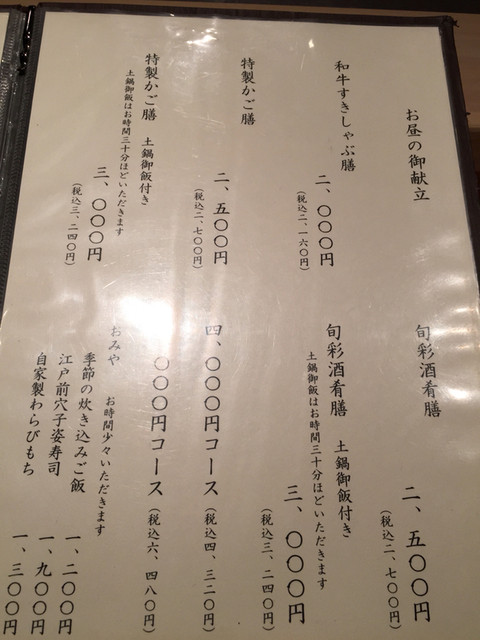 お昼の御献立
和牛すきしゃぶ膳
二、〇〇〇円
(税込二、一六〇円)
特製かご膳
二、五〇〇円
(税込二、七〇〇円)
特製かご膳 土鍋御飯付き
土鍋御飯はお時間三十分ほどいただきます
三、〇〇〇円
(税込三、二四〇円)
旬彩酒肴膳
二、五〇〇円
(税込二、七〇〇円)
旬彩酒肴膳 土鍋御飯付き
土鍋御飯はお時間三十分ほどいただきます
三、〇〇〇円
(税込三、二四〇円)
四、〇〇〇円コース (税込四、三二〇円)
〇〇〇円コース (税込六、四八〇円)
おみや お時間少々いただきます
季節の炊き込みご飯 一、二〇〇円
江戸前穴子姿寿司 一、九〇〇円
自家製わらびもち 一、三〇〇円